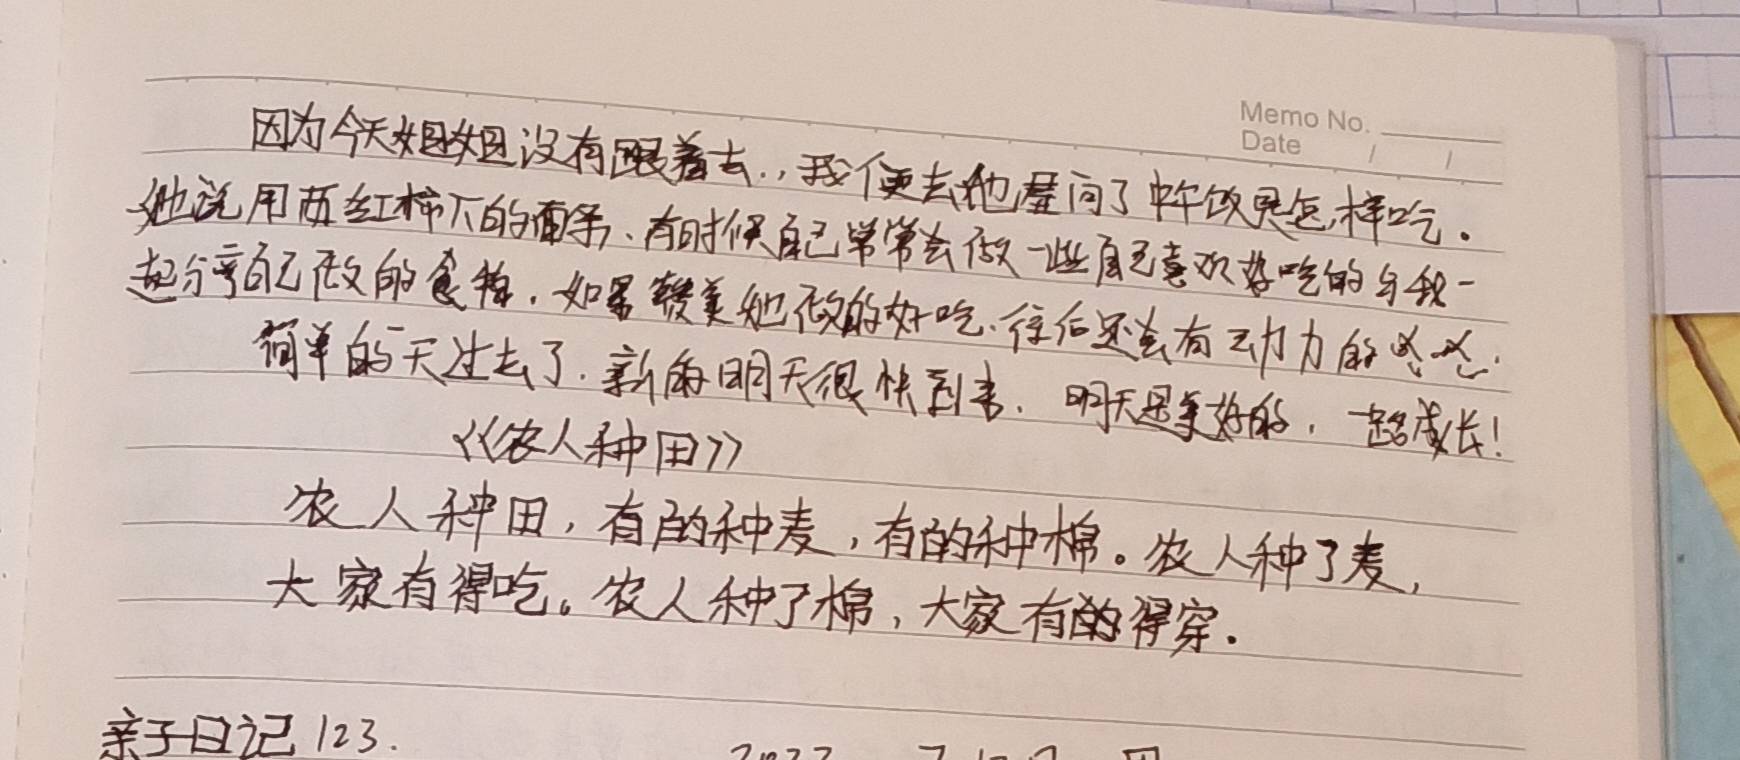 Memo No.
Date / /
因为今天姐姐没有跟着去.,我便去她屋问了中午饭是怎样吃。
她说用西红柿下的面条,有时候自己常常会做一些自己喜欢好吃的与我一
起分享自己做的食物,如果赞美她做的好吃.往后还会有动力的
简单的一天过去了.新的明天很快到来.明天是美好的,一起成长!
《农人种田》
农人种田,有的种麦,有的种棉。农人种了麦,
大家有得吃。农人种了棉,大家有的得穿.
亲子日记123.